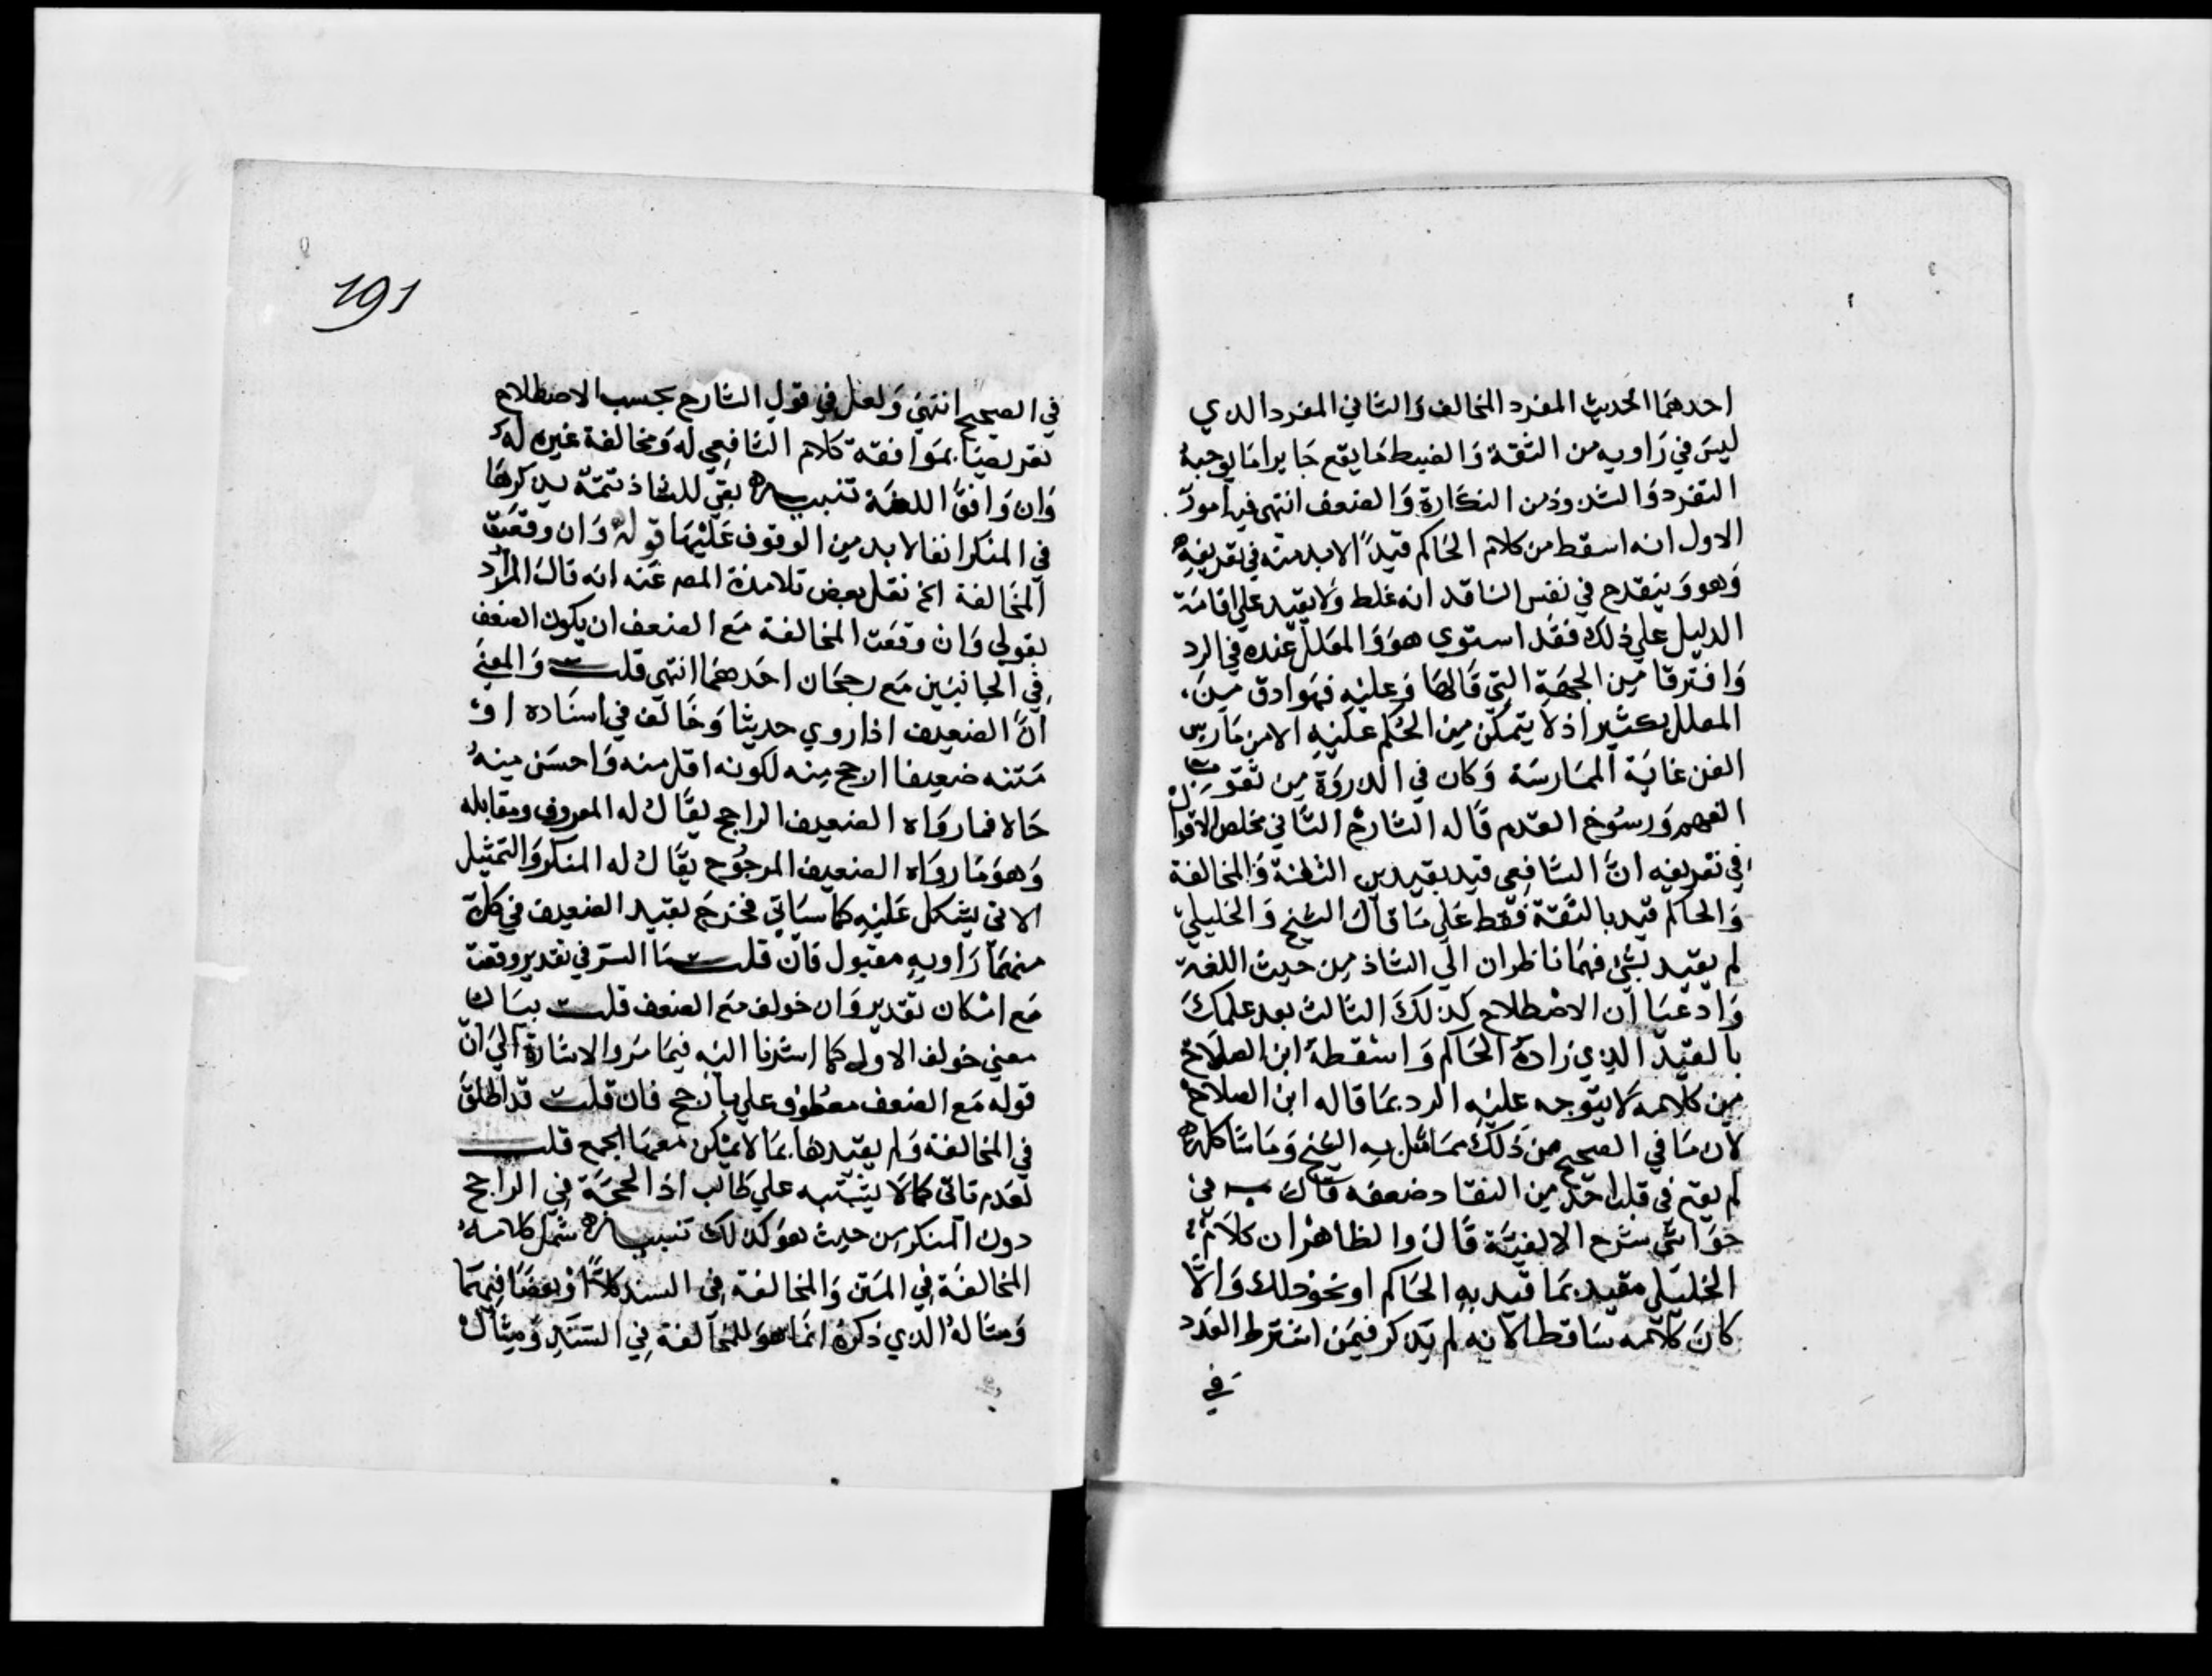 احدهما الحديث المفرد المخالف والثاني المفرد الدي
ليس في راويه من الثقة والضبط ما يقع جابرا ما يوجبه
التفرد والشدوذ من النكارة والضعف انتهى فيه امور
الاول انه اسقط من كلام الحاكم قيدا لابد منه في تعريفه
وهو وينقدح في نفس الناقد انه غلط ولا يقيد علي اقامة
الدليل علي ذلك فقد استوي هو والمعلل عنده في الرد
وافترقا من الجهة التي قالها وعليه فهو ادق من
المعلل بكثير اذ لا يتمكن من الحكم عليه الا من مارس
الفن غاية الممارسة وكان في الدروة من
الفهم ورسوخ القدم قاله الشارح الثاني مخلص الاقوال
في تعريفه ان الشافعي قيد بقيدين الثقة والمخالفة
والحاكم قيد بالثقة فقط علي ما قال الشيخ والخليلي
لم يقيد بشئ فهما ناظران الي الشاذ من حيث اللغة
وادعيا ان الاصطلاح كذلك الثالث بعد علمك
بالقيد الذي زاده الحاكم واسقطه ابن الصلاح
من كلامه لا يتوجه عليه الرد بما قاله ابن الصلاح
لان ما في الصحيح من ذلك مما مثل به الشيخ وما شاكله
لم يقع في قلب احد من النقاد ضعفه قال ب في
حواشي شرح الالفية قال والظاهر ان كلام
الخليلي مقيد بما قيد به الحاكم او نحو ذلك والا
كان كلامه ساقطا لانه لم يدكر فيمن اشترط العدد
في
191
في الصحيح انتهى ولعل في قول الشارح بحسب الاصطلاح
تعريضا بموافقة كلام الشافعي له ومخالفة غيره له
وان وافق اللغة تنبيه بقي للشاذ تتمة يدكرها
في المنكر انفا لابد من الوقوف عليها قوله وان وقعت
المخالفة الخ نقل بعض تلامذة المص عنه انه قال المراد
بقولي وان وقعت المخالفة مع الضعف ان يكون الضعف
في الجانبين مع رجحان احدهما انتهى قلت والمعنى
ان الضعيف اذا روي حديثا وخالف في اسناده او
متنه ضعيفا ارجح منه لكونه اقل منه واحسن منه
حالا فما رواه الضعيف الراجح يقال له المعروف ومقابله
وهو ما رواه الضعيف المرجوح يقال له المنكر والتمثيل
الاتي يشكل عليه كما سياتي فخرج بقيد الضعيف في كل
منهما راويه مقبول فان قلت ما السر في تقدير وقعت
مع امكان تقدير وان خولف مع الضعف قلت بيان
معنى خولف الاول كما اشرنا اليه فيما مر والاشارة الي ان
قوله مع الضعف معطوف علي بارجح فان قلت قد اطلق
في المخالفة ولم يقيدها بما لا يمكن معها الجمع قلت
لعدم تاتي كما لا يشتبه علي طالب اذ الحجة في الراجح
دون المنكر من حيث هو كذلك تنبيه شمل كلامه
المخالفة في المتن والمخالفة في السند كلا او بعضا فيهما
ومثاله الدي ذكره انما هو للمخالفة في السند ومثال